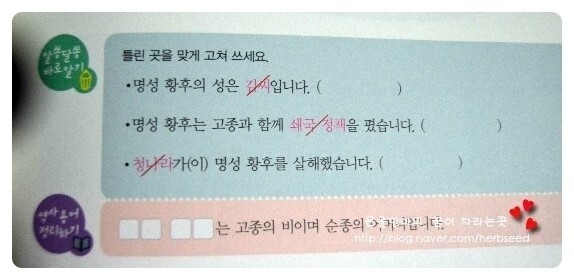 알쏭달쏭
바로알기
틀린 곳을 맞게 고쳐 쓰세요.
•명성 황후의 성은 김씨입니다. (          )
•명성 황후는 고종과 함께 쇄국 정책을 폈습니다. (          )
•청나라가(이) 명성 황후를 살해했습니다. (          )
역사 용어
정리하기
□□ □□는 고종의 비이며 순종의
http://blog.naver.com/herbseed